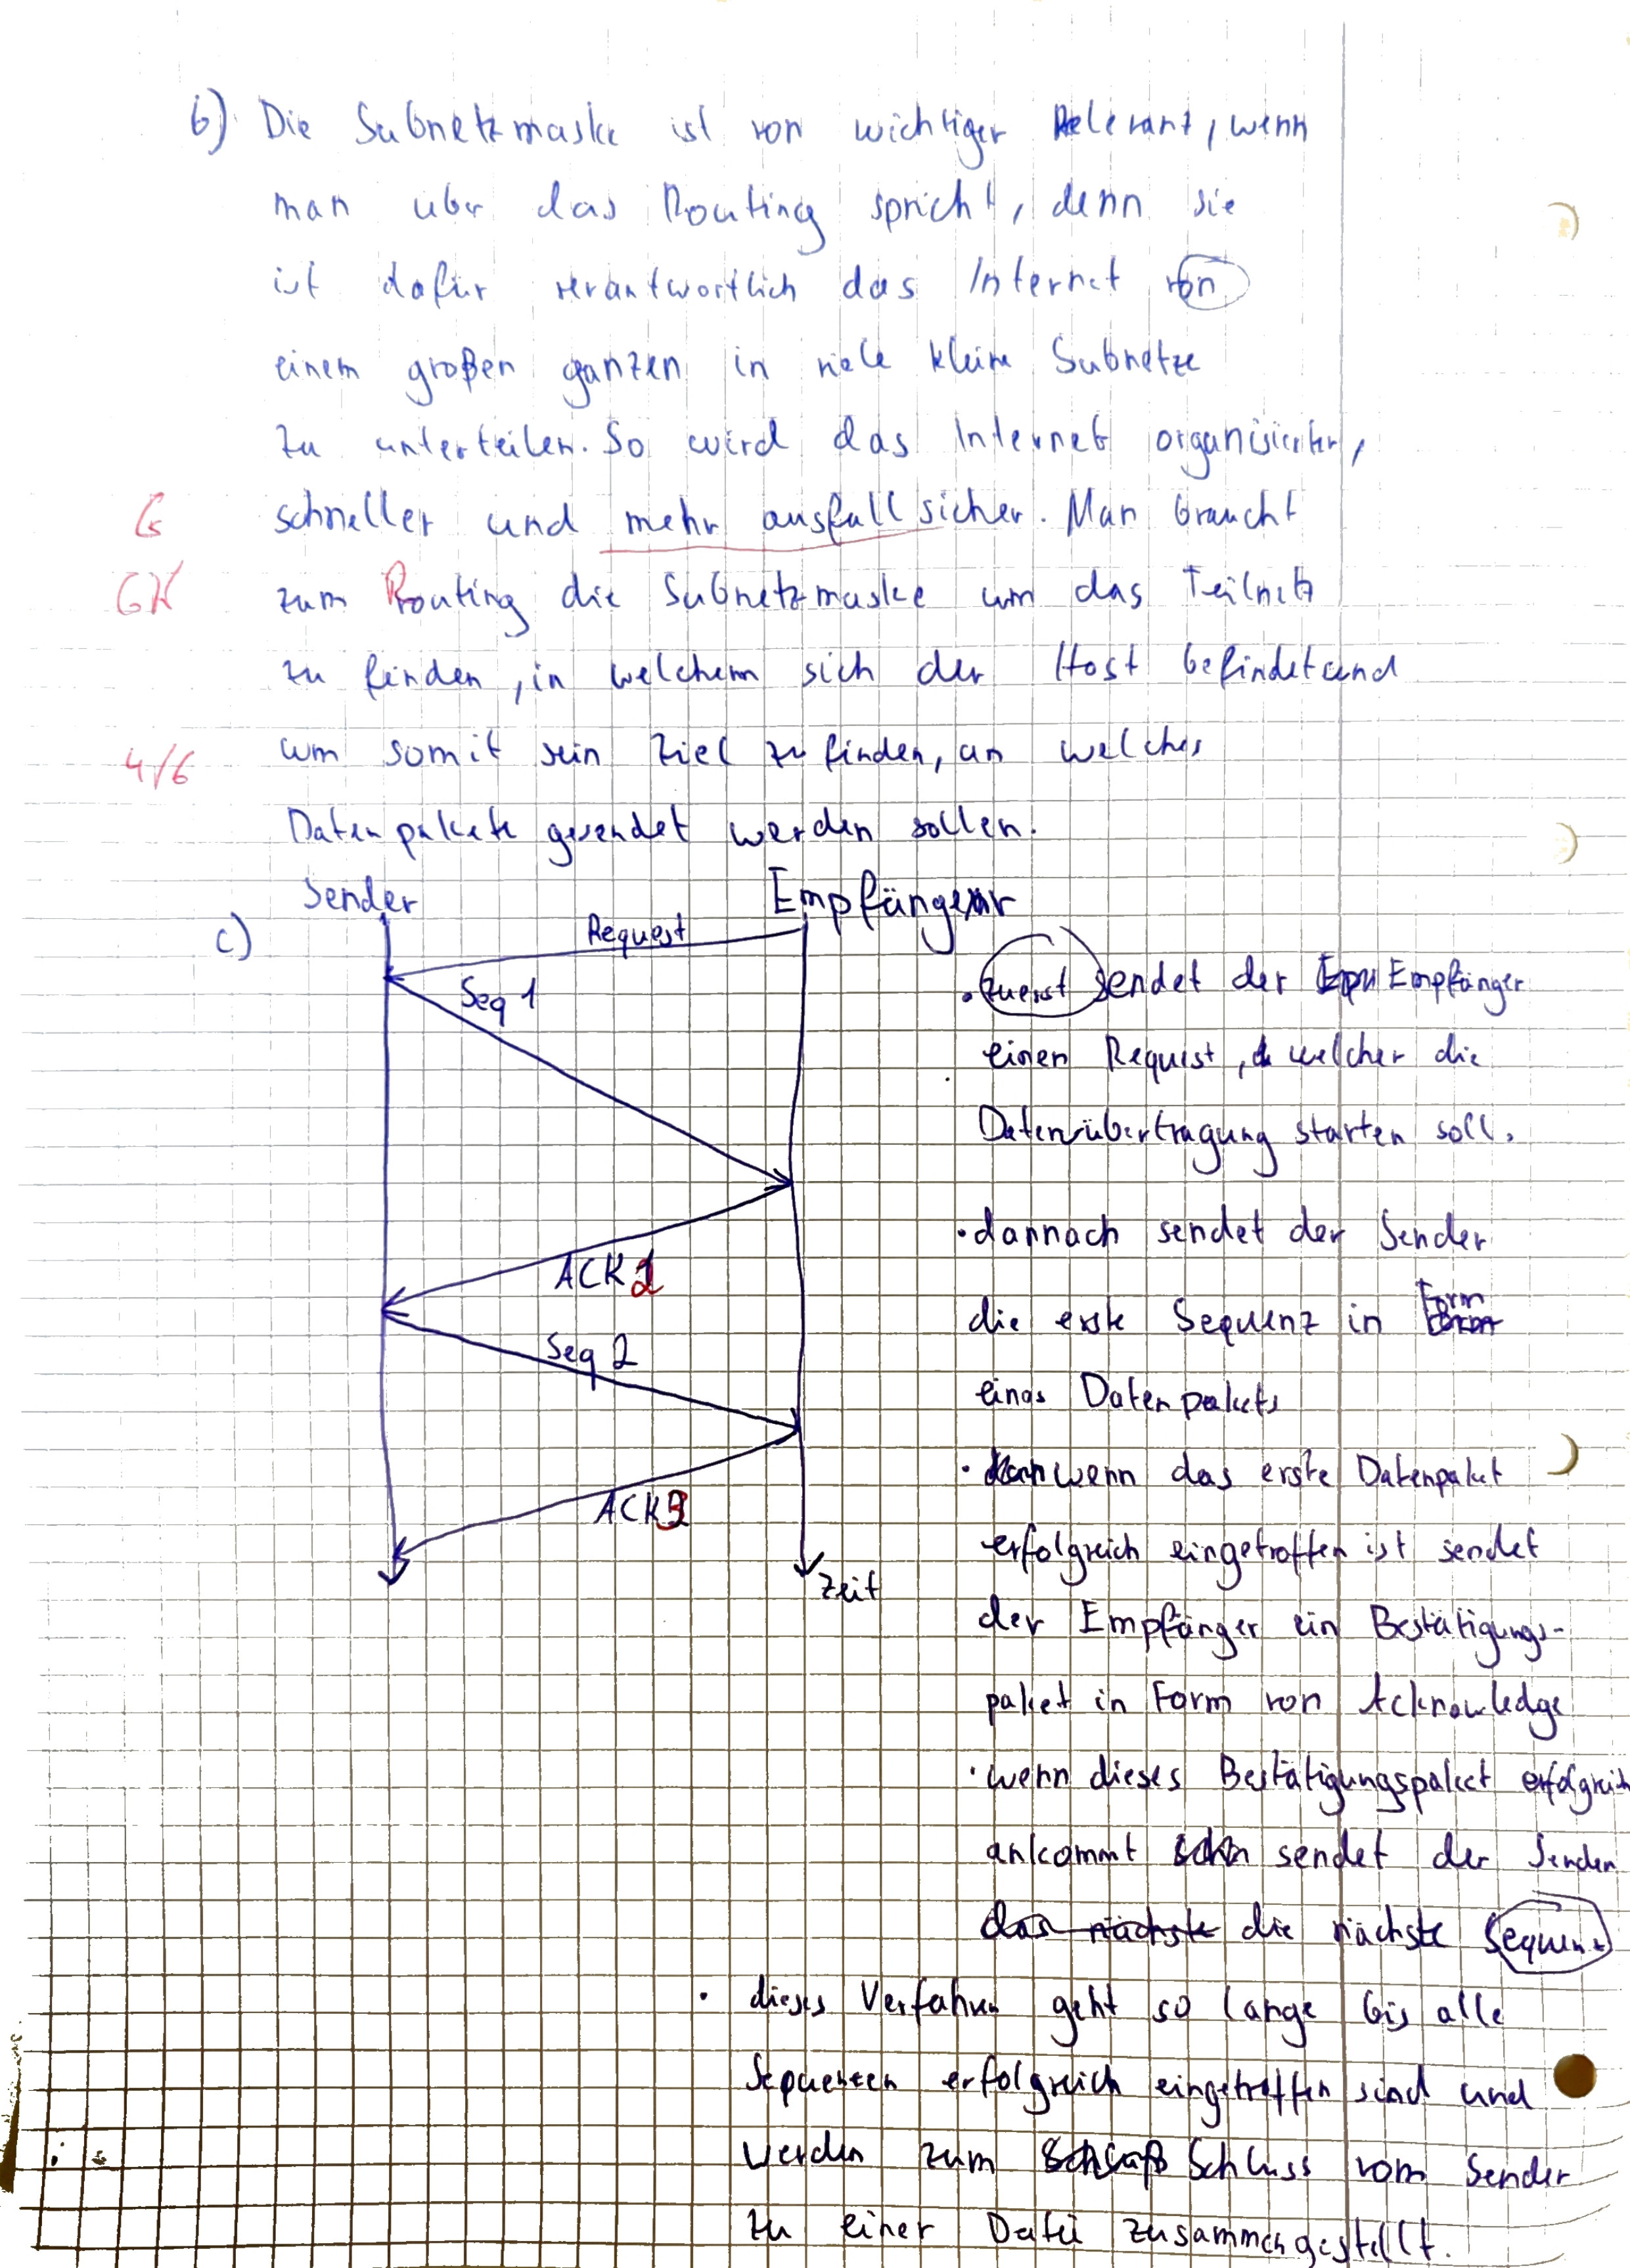 b) Die Subnetzmaske ist von wichtiger Relevant, wenn
man über das Routing spricht, denn sie
ist dafür verantwortlich das Internet von
einem großen ganzen in viele kleine Subnetze
zu unterteilen. So wird das Internet organisierter,
schneller und mehr ausfallsicher. Man braucht
zum Routing die Subnetzmaske um das Teilnetz
GK
zu finden, in welchem sich der Host befindet und
um somit sein Ziel zu finden, an welches
4/6
Datenpakete gesendet werden sollen.
c)
Sender
Empfänger
Request
Seq 1
ACK 2
Seq 2
ACK 3
Zeit
• zuerst sendet der Empfänger
einen Request, welcher die
Datenübertragung starten soll.
• dannach sendet der Sender
die erste Sequenz in Form
eines Datenpakets
• wenn das erste Datenpaket
erfolgreich eingetroffen ist sendet
der Empfänger ein Bestätigungs-
paket in Form von Acknowledge
• wenn dieses Bestätigungspaket erfolgreich
ankommt sendet der Sender
das nächste die nächste Sequenz
• dieses Verfahren geht so lange bis alle
Sequenzen erfolgreich eingetroffen sind und
werden zum Schluss vom Sender
zu einer Datei zusammengestellt.